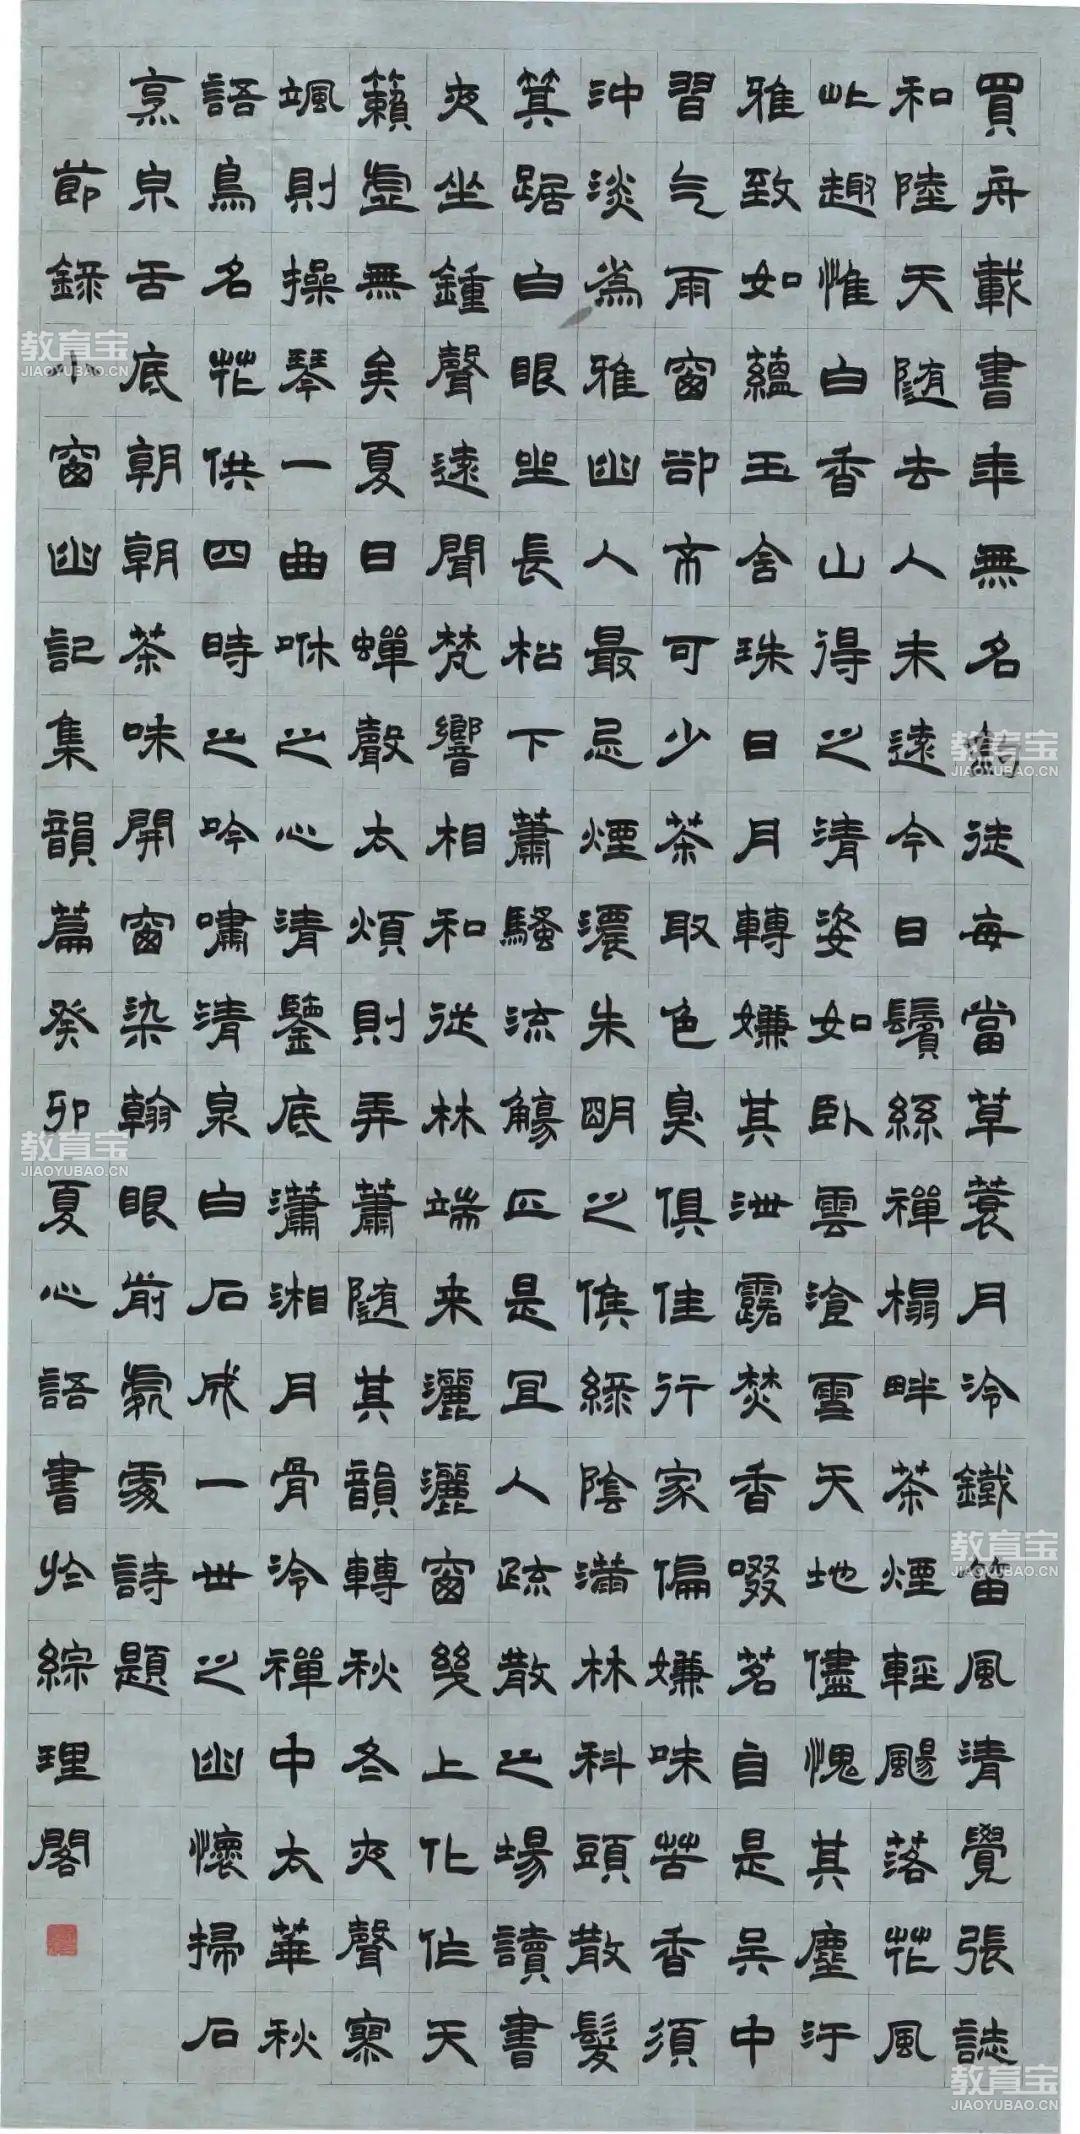 買舟載書年無名徒每當草蓑月冷鐵笛風清覺張誌
和陸天随去人未遠今日鬢絲禪榻畔茶煙輕颺落花風
此趣惟白香山得之清姿如臥雲飡雪天地儘愧其塵汙
雅致如蘊玉含珠日月轉嫌其泄露焚香啜茗自是吳中
習气雨窗卻不可少茶取色臭俱佳行家偏嫌味苦香須
沖淡為雅幽人最忌煙濃朱明之候綠陰滿林科頭散髮
箕踞白眼坐長松下蕭騷流觴正是宜人疏散之場讀書
夜坐鍾聲遠聞梵響相和從林端来灑灑窗幾上化作天
籟虛無矣夏日蟬聲太煩則弄蕭随其韻轉秋冬夜聲寥
颯則操琴一曲咻之心清鑒底瀟湘月骨冷禪中太華秋
語鳥名花供四時之吟嘯清泉白石成一世之幽懷掃石
烹泉舌底朝朝茶味開窗染翰眼前處處詩題
節錄小窗幽記集韻篇癸卯夏心語書於綜理閣
教育宝
JIAOYUBAO.CN
教育宝
JIAOYUBAO.CN
教育宝
JIAOYUBAO.CN
教育宝
JIAOYUBAO.CN
教育宝
JIAOYUBAO.CN